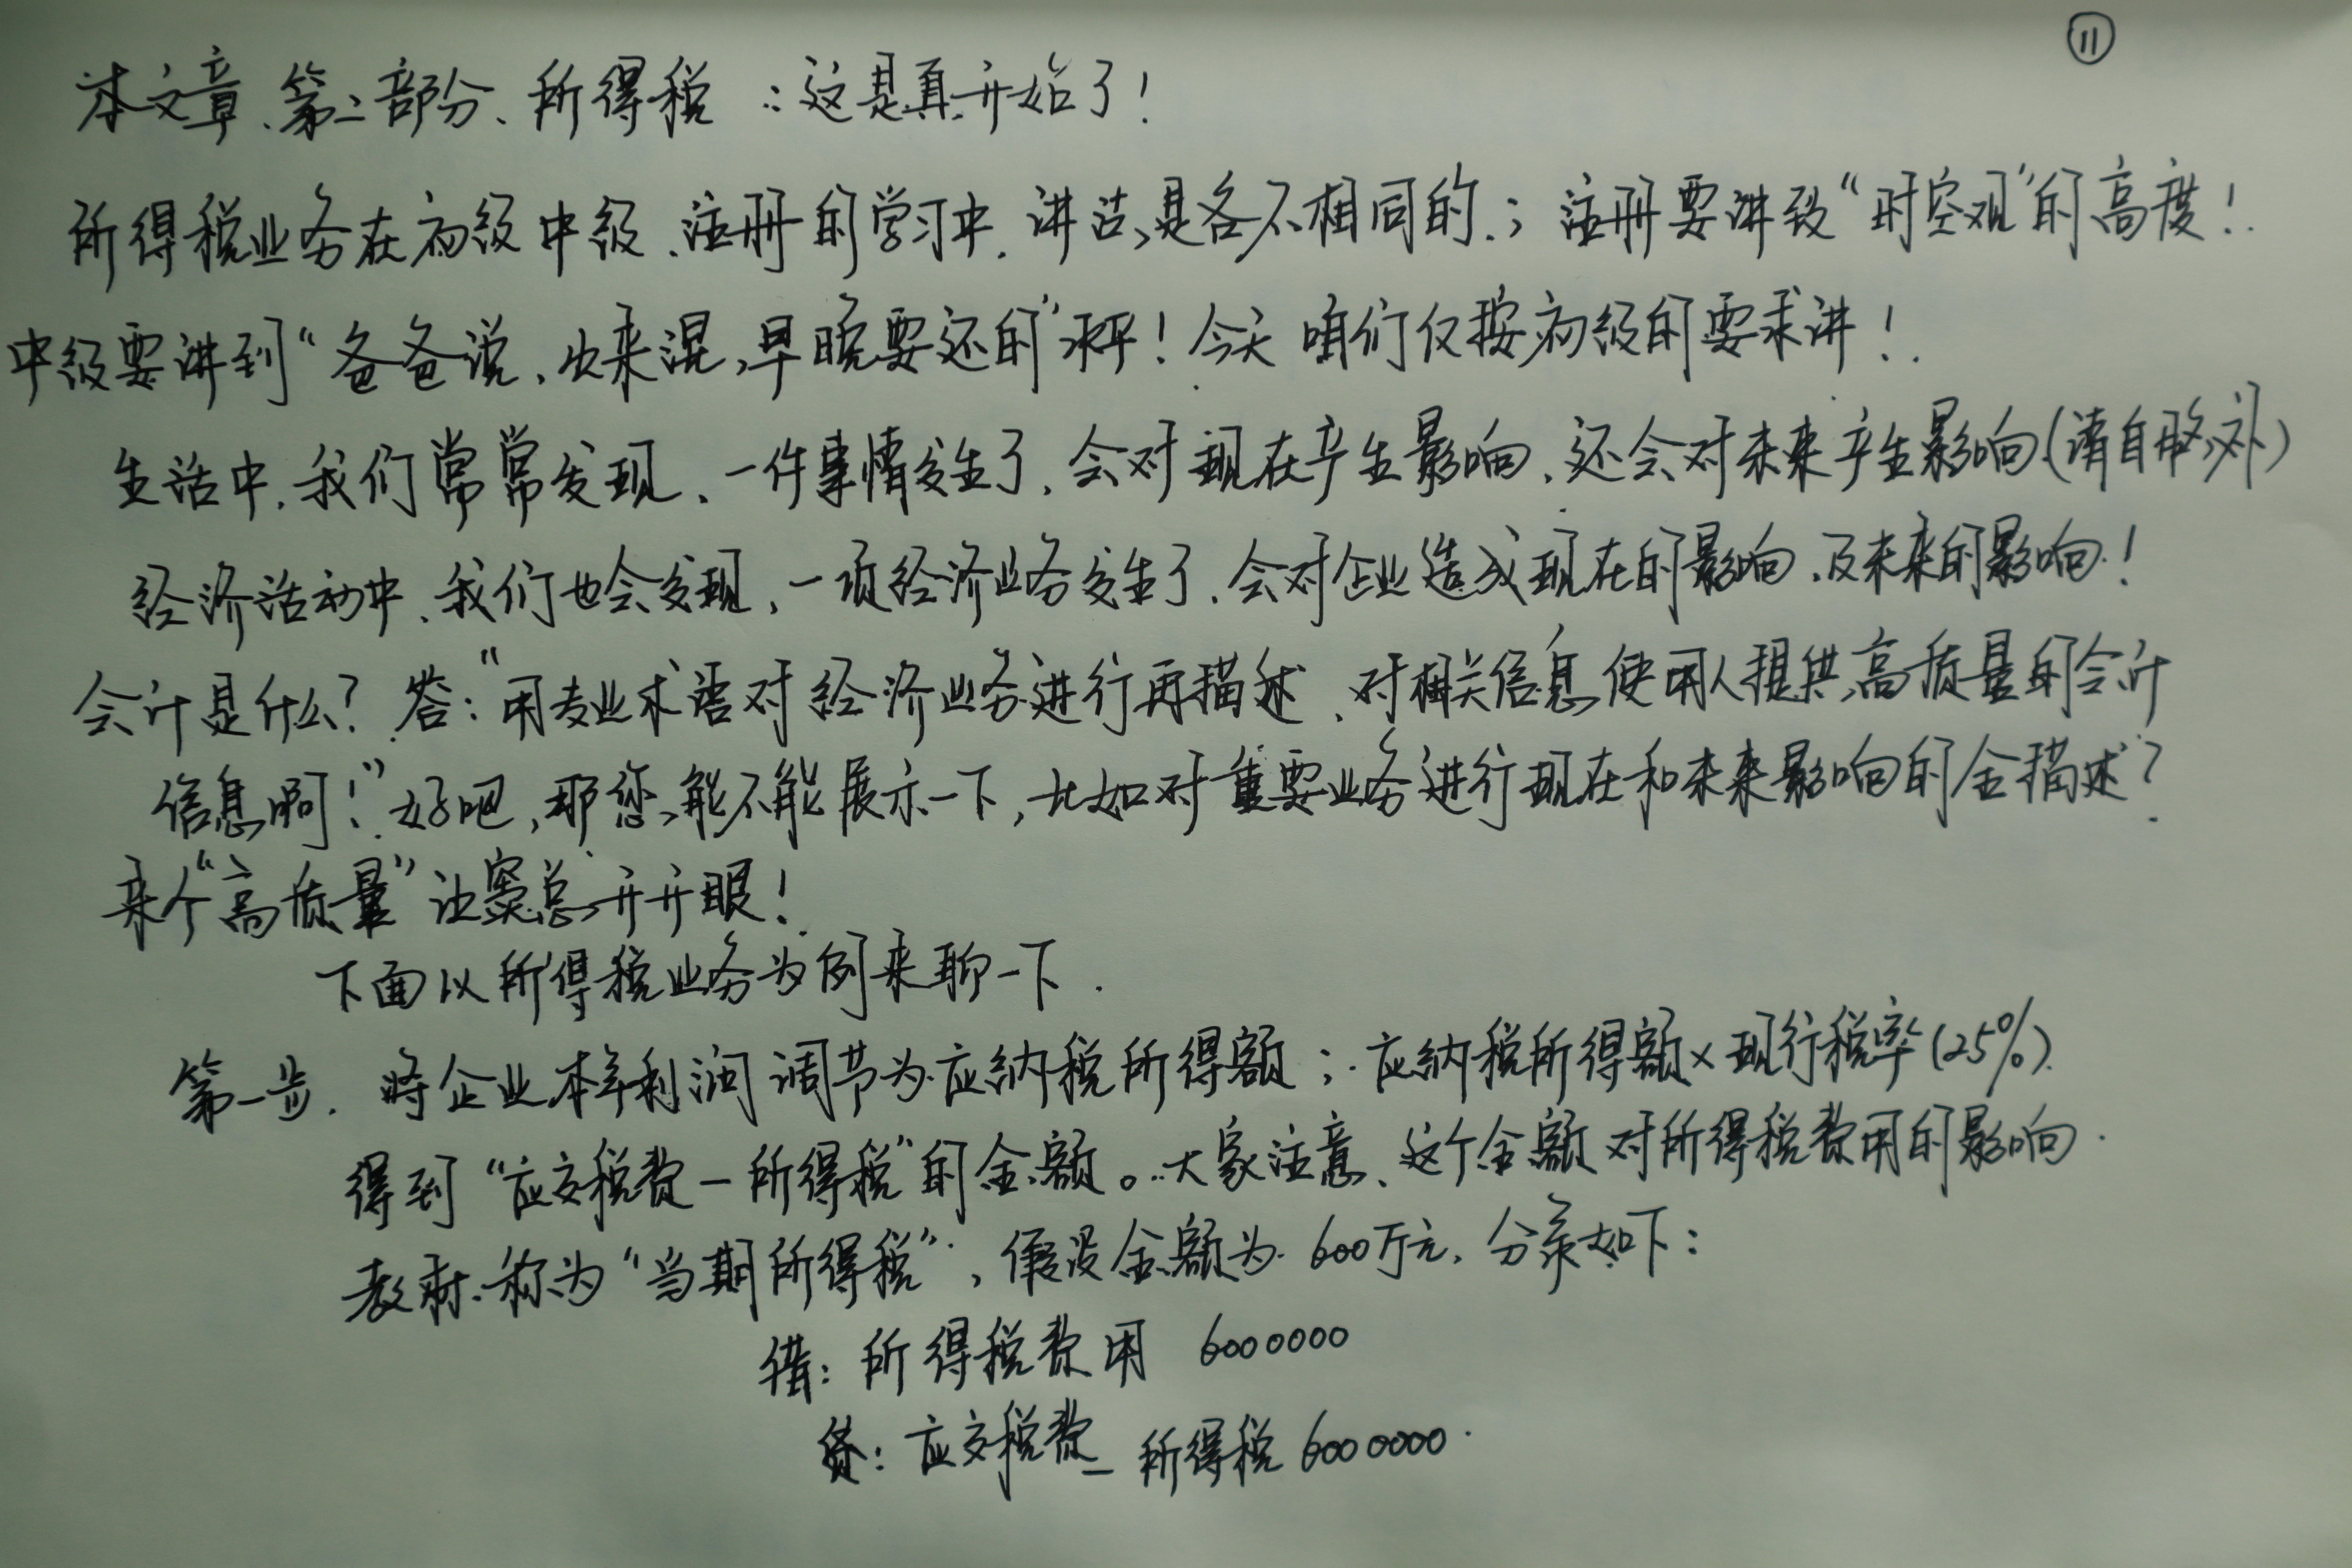 ⑪
本文章、第二部分、所得税：这是真开始了！
所得税业务在初级中级、注册的学习中，讲法是各不相同的；注册要讲致“时空观”的高度！
中级要讲到“爸爸说，出来混，早晚要还的”水平！今天咱们仅按初级的要求讲！
生活中，我们常常发现，一件事情发生了，会对现在产生影响，还会对未来产生影响（请自行脑补）
经济活动中，我们也会发现，一项经济业务发生了，会对企业造成现在的影响，及未来的影响！
会计是什么？答：“用专业术语对经济业务进行再描述，对相关信息使用人提供高质量的会计
信息啊！”好吧，那您能不能展示一下，比如对重要业务进行现在和未来影响的全描述？
来个“高质量”让窦总开开眼！
下面以所得税业务为例来聊一下．
第一步．将企业本年利润调节为应纳税所得额；应纳税所得额×现行税率(25%)
得到“应交税费—所得税”的金额。大家注意、这个金额对所得税费用的影响
教材称为“当期所得税”，假设金额为600万元，分录如下：
借：所得税费用 6000000
贷：应交税费—所得税 6000000